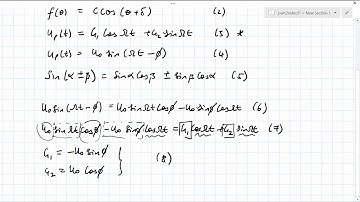 f(θ) = C cos(θ+δ) (2)
u_p(t) = G₁ cos Ωt + G₂ sin Ωt (3) *
u_p(t) = u₀ sin(Ωt − φ) (4)
Sin(α±β) = sinα cosβ ± sinβ cosα (5)
u₀ sin(Ωt−φ) = u₀ sinΩt cosφ − u₀ sinφ cosΩt (6)
u₀ sinΩt cosφ − u₀ sinφ cosΩt = G₁ cosΩt + G₂ sinΩt (7)
G₁ = −u₀ sinφ
G₂ = u₀ cosφ } (8)